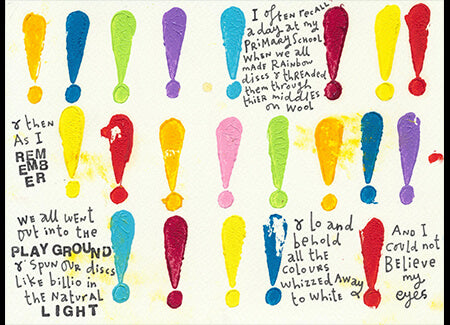 I oFtEN REcall
a day at my
PRiMARY SCHOOL
WHEN WE ALL
MADE RAiNBOW
discs & thREaded
them through
thiER middlES
on WOOL
& thEN
As I
REM
EMB
ER
WE all WENt
out into thE
PLAYGROUND
& SPUN OUR discs
LiKE billio in
thE NatURal
LIGHT
& lo and
behold
all thE
COLOURS
whizzEd AWAY
to WhitE
ANd I
COUld Not
BELiEVE
my
EYES